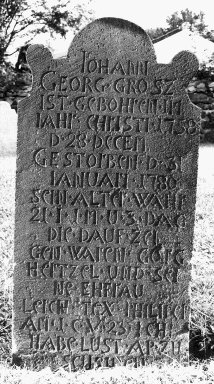 IOHANN
GEORG·GROSZ
IST·GEBOHREN·IM
IAHR CHRISTI·1758
D·28·DECEM
GESTORBEN·D·31
IANUARI·1780
SEIN·ALTER·WAHR
21·I·1·M·U·3·DAG
DIE·DAUF·ZEI
GEN·WAREN·GORG
HERTZEL·UND·SEI
NE·EHFRAU
LEICH·TEX·PHILIPER
AM·1·C·V·23·ICH
HABE·LUST·AB·ZU
SCHEIDEN